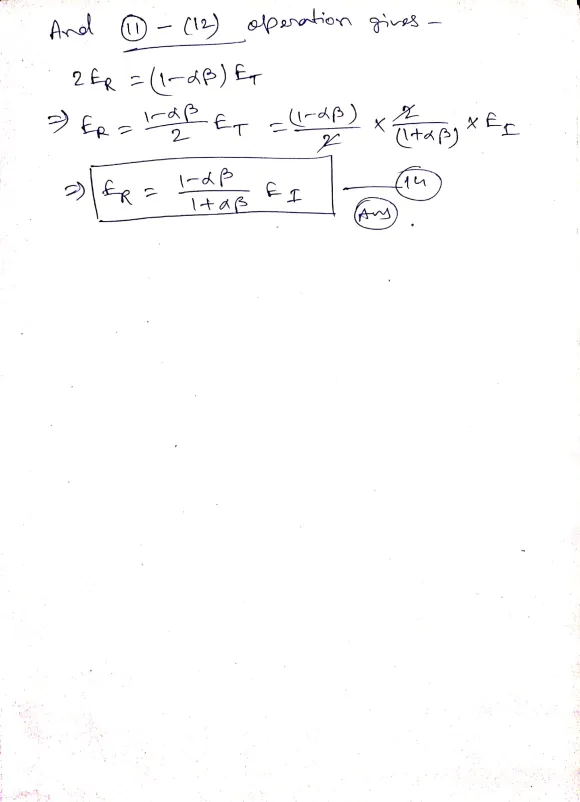 And ⑪ - (12) operation gives -
2 E_R = (1-αβ) E_T
⇒ E_R = \frac{1-αβ}{2} E_T = \frac{(1-αβ)}{2} × \frac{2}{(1+αβ)} × E_I
⇒ E_R = \frac{1-αβ}{1+αβ} E_I —— (14)
(Ans) .